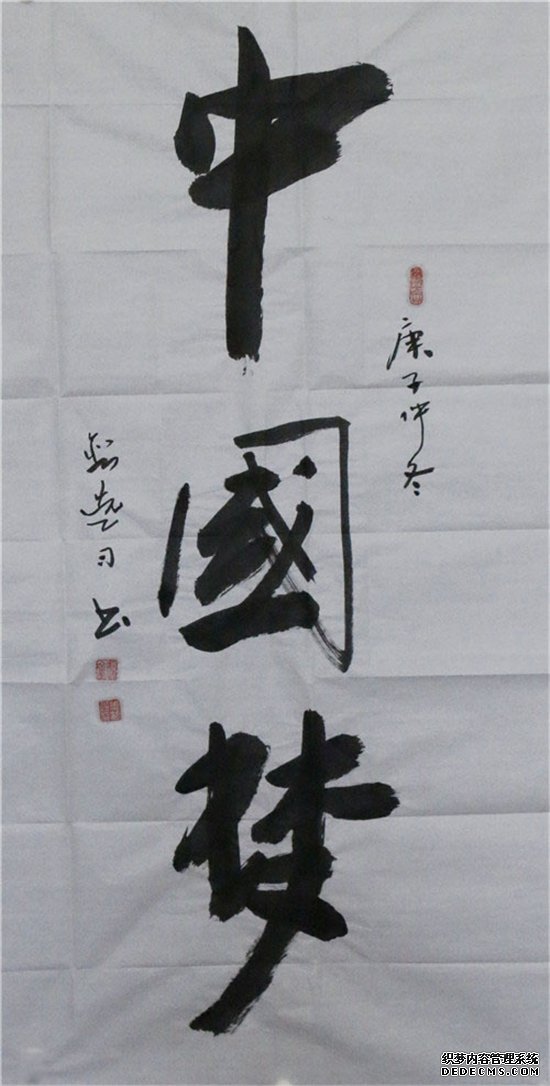 中國梦
庚子仲冬
书
织梦内容管理系统
DEDECMS.COM